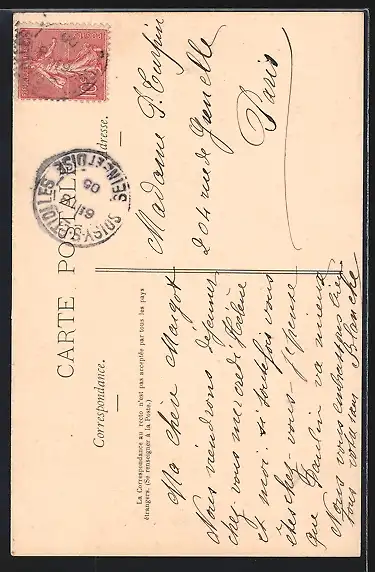 CARTE POSTALE
Correspondance.
La Correspondance au recto n'est pas acceptée par tous les pays
étrangers. (Se renseigner à la Poste.)
Adresse.
Ma chère Margot
Nous viendrons déjeuner
chez vous mercredi Hélène
et moi. si toutefois vous
êtes chez-vous. Je pense
que Paulin va mieux
Nous vous embrassons bien
tous
Blanche
Madame P. Turpin
204 rue de Grenelle
Paris
SOISY-S-ETIOLLES
SEINE-ET-OISE
05